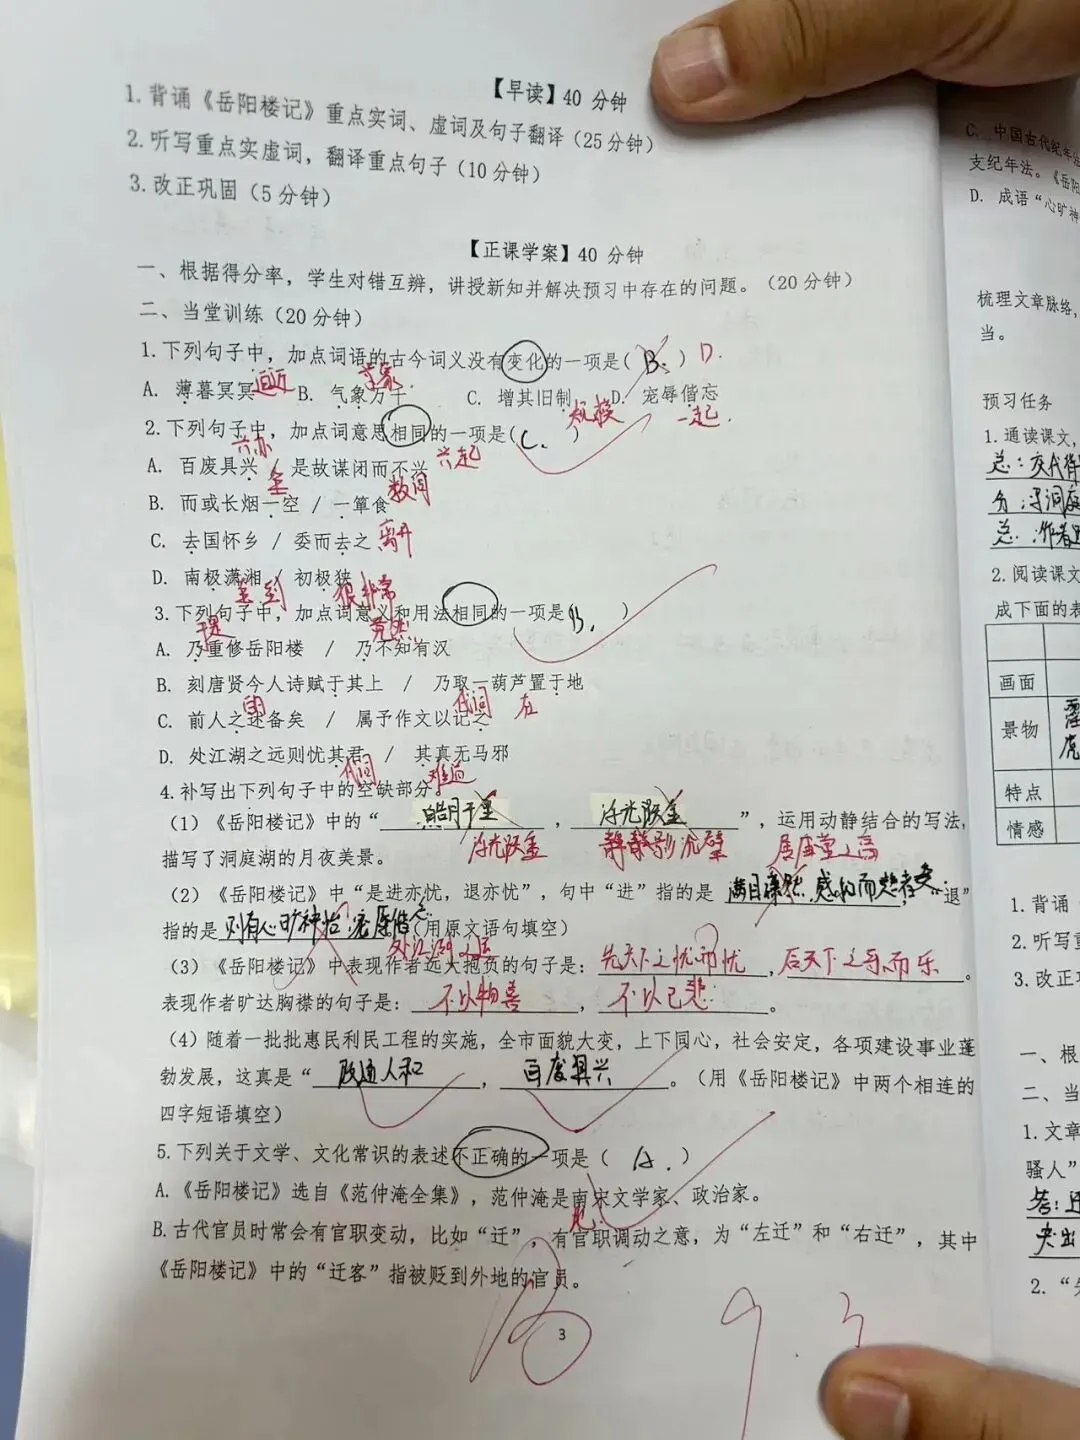 【早读】40 分钟
1.背诵《岳阳楼记》重点实词、虚词及句子翻译（25分钟）
2.听写重点实虚词，翻译重点句子（10分钟）
3.改正巩固（5分钟）
【正课学案】40 分钟
一、根据得分率，学生对错互辨，讲授新知并解决预习中存在的问题。（20分钟）
二、当堂训练（20分钟）
1.下列句子中，加点词语的古今词义没有变化的一项是（ B. ）D.
迫近 景象
A. 薄暮冥冥 B. 气象万千 C. 增其旧制 D. 宠辱偕忘
规模 一起.
2.下列句子中，加点词意思相同的一项是（C. ）
兴办 兴起
A. 百废具兴 / 是故谋闭而不兴
全 数词
B. 而或长烟一空 / 一箪食
C. 去国怀乡 / 委而去之 离开
D. 南极潇湘 / 初极狭
至到 很非常
3.下列句子中，加点词意义和用法相同的一项是（B. ）
于是 竟然
A. 乃重修岳阳楼 / 乃不知有汉
B. 刻唐贤今人诗赋于其上 / 乃取一葫芦置于地
的 代词 在
C. 前人之述备矣 / 属予作文以记之
D. 处江湖之远则忧其君 / 其真无马邪
代词 难道
4.补写出下列句子中的空缺部分。
（1）《岳阳楼记》中的“ 皓月千里 ， 浮光跃金 ”，运用动静结合的写法，
浮光跃金 静影沉璧 居庙堂之高
描写了洞庭湖的月夜美景。
（2）《岳阳楼记》中“是进亦忧，退亦忧”，句中“进”指的是 满目萧然，感极而悲者矣 ，“退”
指的是 则有心旷神怡，宠辱偕忘 （用原文语句填空）
处江湖之远
（3）《岳阳楼记》中表现作者远大抱负的句子是： 先天下之忧而忧 ， 后天下之乐而乐 。
表现作者旷达胸襟的句子是： 不以物喜 ， 不以己悲 。
（4）随着一批批惠民利民工程的实施，全市面貌大变，上下同心，社会安定，各项建设事业蓬
勃发展，这真是“ 政通人和 ， 百废具兴 。（用《岳阳楼记》中两个相连的
四字短语填空）
5.下列关于文学、文化常识的表述不正确的一项是（ A. ）
A.《岳阳楼记》选自《范仲淹全集》，范仲淹是南宋文学家、政治家。
北
B.古代官员时常会有官职变动，比如“迁”，有官职调动之意，为“左迁”和“右迁”，其中
《岳阳楼记》中的“迁客”指被贬到外地的官员。
3
9.3
C. 中国古代纪年法
支纪年法。《岳阳
D. 成语“心旷神
梳理文章脉络，
当。
预习任务
1.通读课文，
总：交代背
2.阅读课文
成下面的表
画面
景物
特点
情感
1.背诵
2.听写重
3.改正巩
一、根
二、当
1.文章
骚人”
突出
2.“先